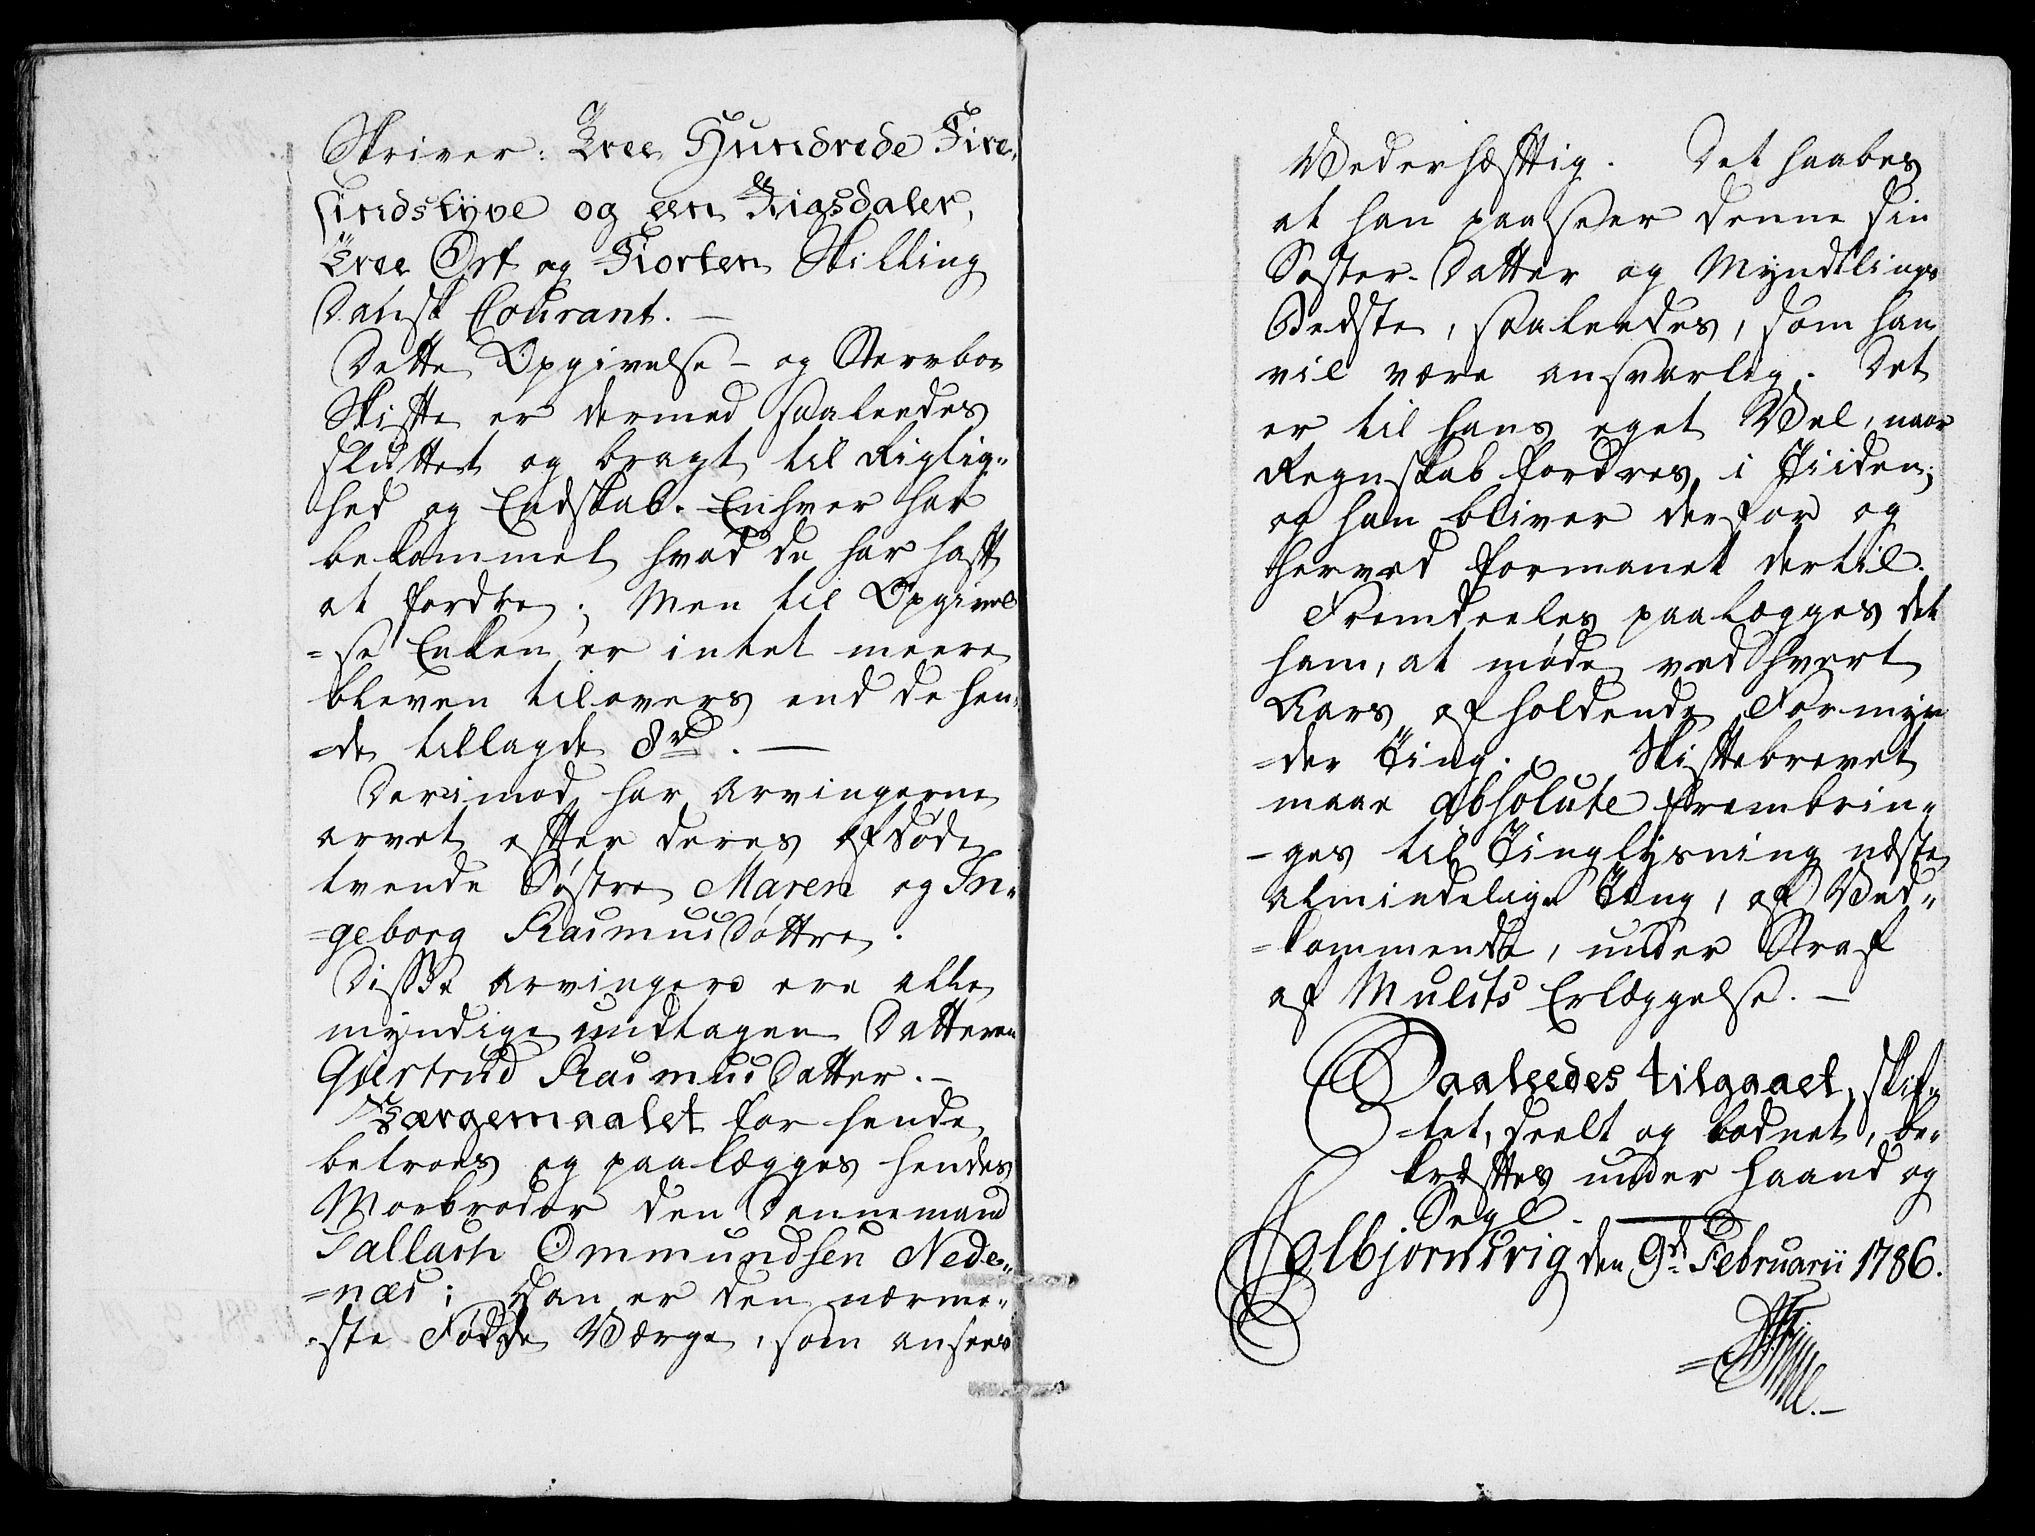 Skriver: Tree Hundrede Fire,
sindstyve og een Rigsdaler,
Tree Ort og Fiorten Skilling
Dansk Courant. —
Dette Opgivelse- og Sterrboe
Skifte er dermed saaleedes
sluttet og bragt til Rigtig„
hed og Endskab. Enhver har
bekommet hvad de har hafft
at fordre; Men til Opgivel
=se Enken er intet meere
bleven tilovers end de hen„
=de tillagde 8 rd. —
Derimod har Arvingerne
arvet efter deres afdøde
tvende Søstre Maren og In„
=geborg Rasmus Døttre.
Disse Arvinger ere alle
myndige undtagen Datteren
Giertrud Rasmus Datter. —
Værgemaalet for hende
betroes og paalægges hendes
Morbroder den Dannemand
Tallach Ommundsen Nede„
=næs; Han er den nærme„
=ste Fødde Værge, som ansees
Vederhæfftig. Det haabes
at han paaseer denne sin
Søster-Datter og Myndtlings
Bedste, saaleedes, som han
vil være ansvarlig. Det
er til hans eget Vel, naar
Regnskab fordres, i Tiiden;
og han bliver derfor og
herved formanet dertil.
Fremdeeles paalægges det
ham, at møde ved hvert
Aars afholdende Formyn
=der Ting. Skiftebrevet
maae absolute frembrin„
=ges til Tinglysning næste
almindelige Ting, af Ved„
=kommende, under Straf
af Mulcts Erlæggelse. —
Saaleedes tilgaaet, skif„
=tet, deelt og lodnet, be„
kræfttes under Haand og
Segl. —
Colbjornsvig den 9d. Februarii 1786.